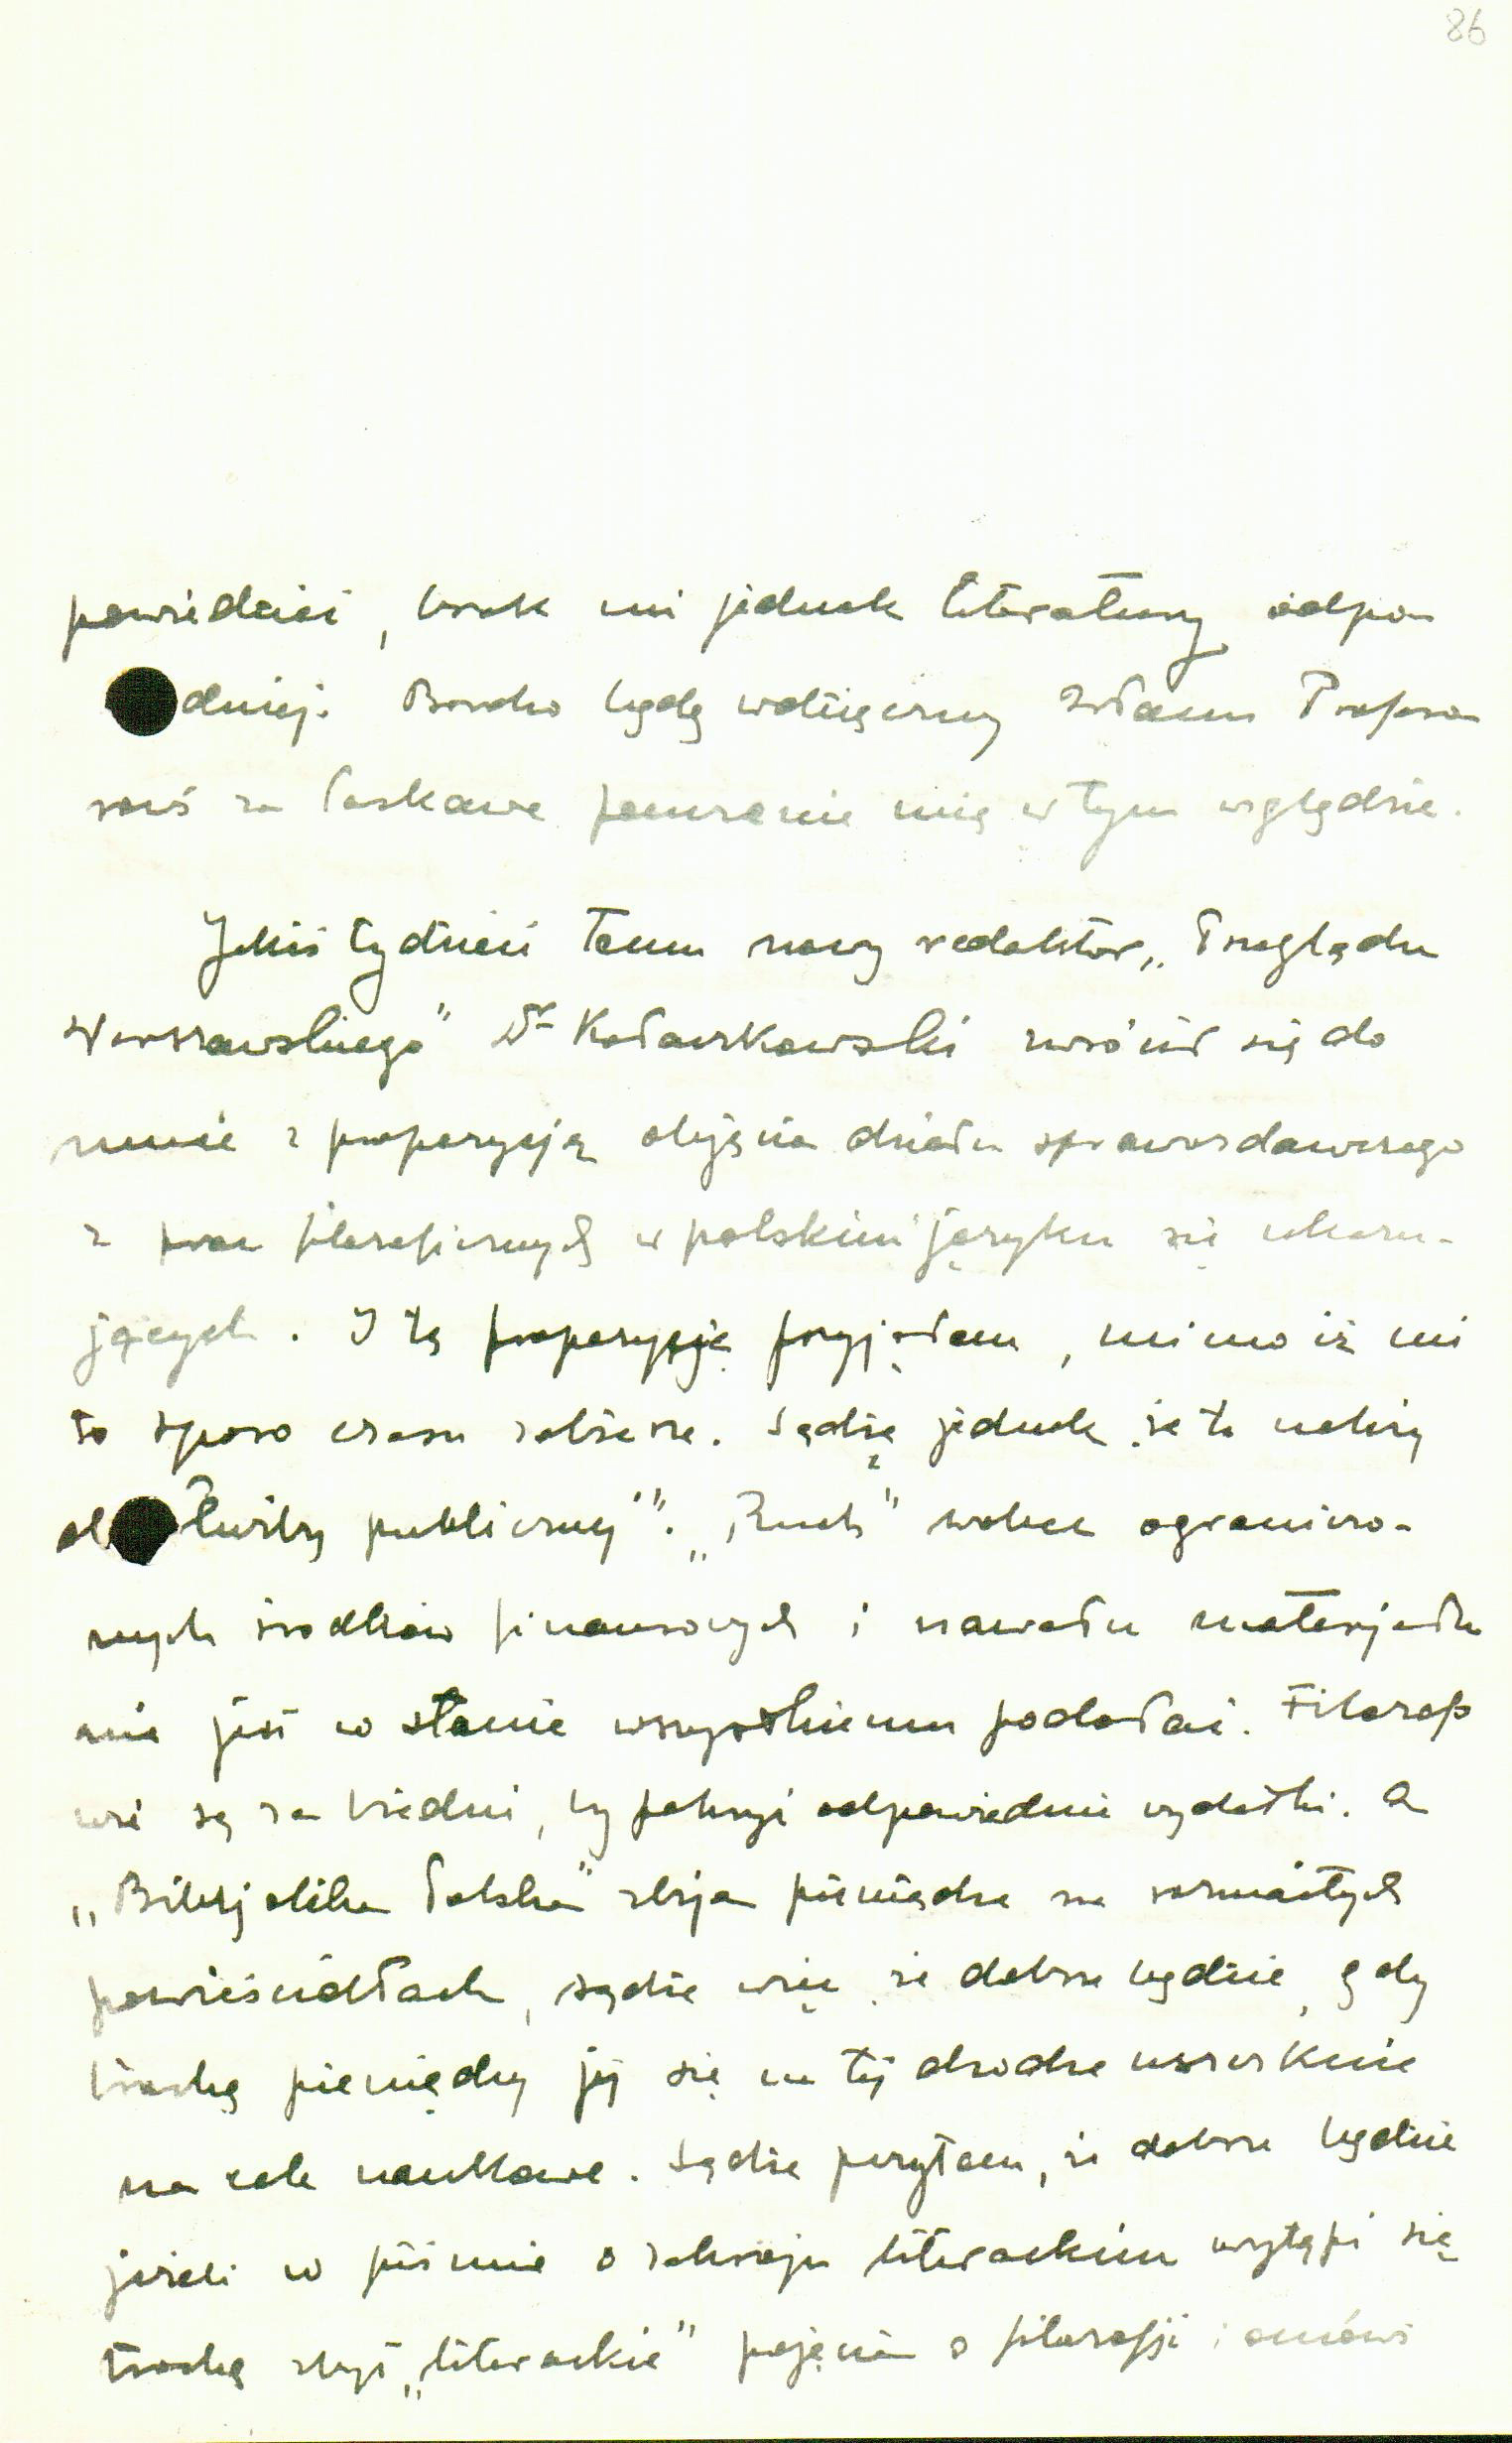 86
powiedzieć, brak mi jednak literatury odpow
dniej. Bardzo będę wdzięczny Profeso
rowi za łaskawe pouczenie mię w tym względzie.
Jakiś tydzień temu nowy redaktor „Przeglądu
Warszawskiego" Dr Kołaczkowski zwrócił się do
mnie z propozycją objęcia działu sprawozdawczego
z prac filozoficznych w polskim języku się ukazu-
jących. I tę propozycję przyjąłem, mimo iż mi
to sporo czasu zabierze. Sądzę jednak, że to należy
do służby publicznej". „Ruch" wobec ograniczo-
nych środków finansowych i nawału materjału
nie jest w stanie wszystkiemu podołać. Filozof
wie są za biedni, by pokryć odpowiednie wydatki. A
„Bibljoteka Polska" zbija pieniądze na rozmaitych
powieścidłach, sądzę więc, że dobrze będzie, gdy
trochę pieniędzy jej się na tej drodze uszczknie
na cele naukowe. Sądzę przytem, że dobrze będzie
jeżeli w piśmie o zakroju literackim wytępi się
trochę zbyt „literackie" pojęcia o filozofji i omówi